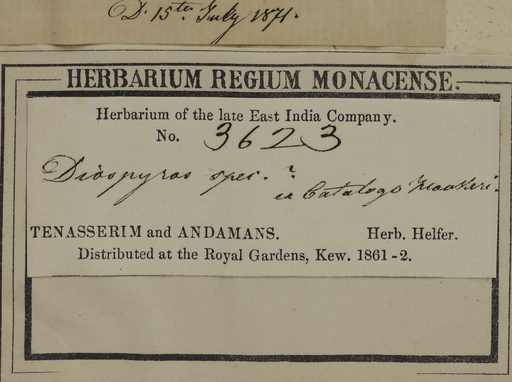 D. 15ten July 1871.
HERBARIUM REGIUM MONACENSE.
Herbarium of the late East India Company.
No. 3623
Diospyros spec.?
ex Catalogo Hookeri.
TENASSERIM and ANDAMANS. Herb. Helfer.
Distributed at the Royal Gardens, Kew. 1861-2.